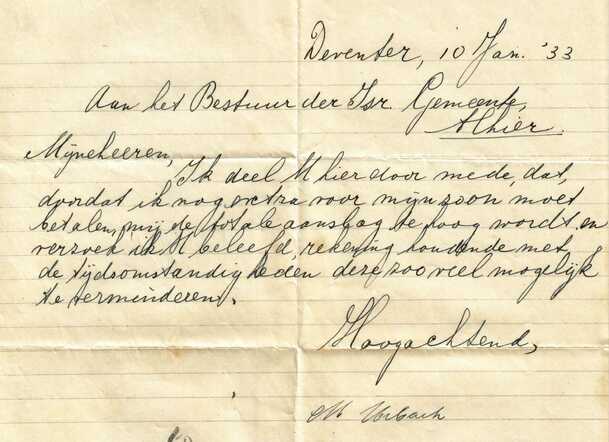 Deventer, 10 Jan. '33
Aan het Bestuur der Isr. Gemeente,
Alhier.
Mijneheeren,
Ik deel U hier door mede, dat,
doordat ik nog extra voor mijn zoon moet
betalen, mij de totale aanslag te hoog wordt, en
verzoek ik U beleefd, rekening houdende met
de tijdsomstandigheden deze zoo veel mogelijk
te verminderen.
Hoogachtend,